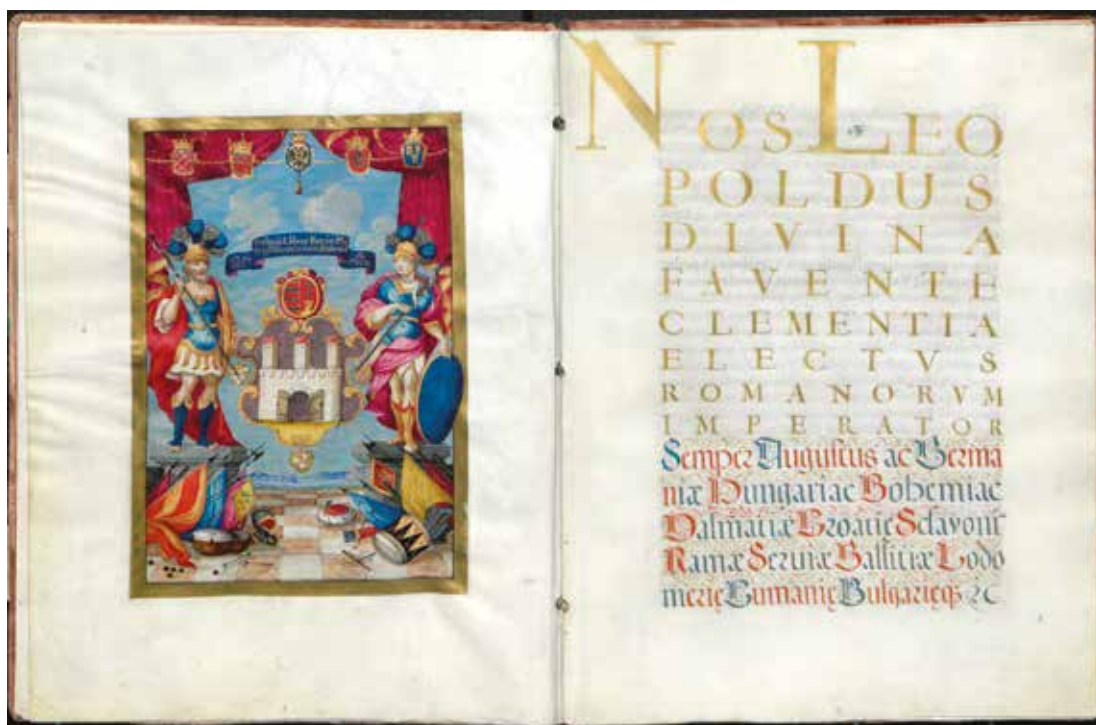 NOS LEO
POLDUS
DIVINA
FAVENTE
CLEMENTIA
ELECTVS
ROMANORVM
IMPERATOR
Semper Auguſtus ac Germa
niæ Hungariae Bohemiae
Dalmatiæ Croatię Sclavonię
Ramæ Serviæ Galliciæ Lodo
merię Cumanię Bulgarięqs ꝛc